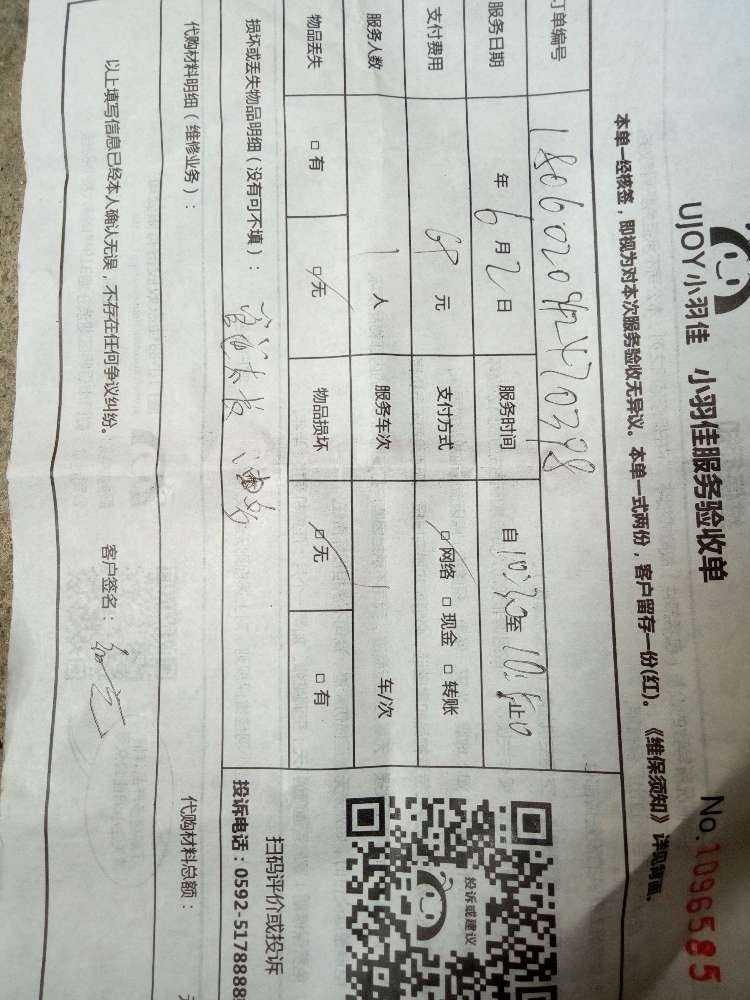 UJOY小羽佳 小羽佳服务验收单 No.1096585
本单一经核签，即视为对本次服务验收无异议。本单一式两份，客户留存一份(红)。《维保须知》详见背面。
订单编号
服务日期 年 6 月 2 日 服务时间 自 10:20 至 10:50 止
支付费用 元 支付方式 网络 现金 转账
服务人数 1 人 服务车次 1 车/次
物品丢失 有 无 物品损坏 无 有
损坏或丢失物品明细（没有可不填）：
代购材料明细（维修业务）： 代购材料总额：
以上填写信息已经本人确认无误，不存在任何争议纠纷。 客户签名：
投诉或建议
扫码评价或投诉
投诉电话：0592-5178888